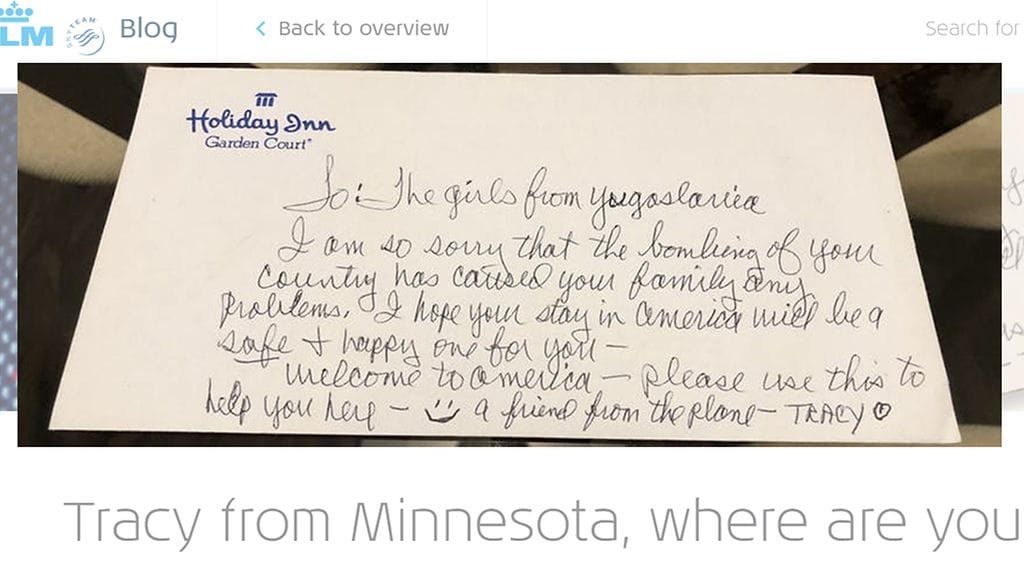 LM
SKYTEAM
Blog
Back to overview
Search for
Holiday Inn
Garden Court
To: The girls from Yugoslavia
I am so sorry that the bombing of your
country has caused your family any
problems. I hope your stay in America will be a
safe + happy one for you —
Welcome to America — please use this to
help you here — a friend from the plane — TRACY
Tracy from Minnesota, where are you